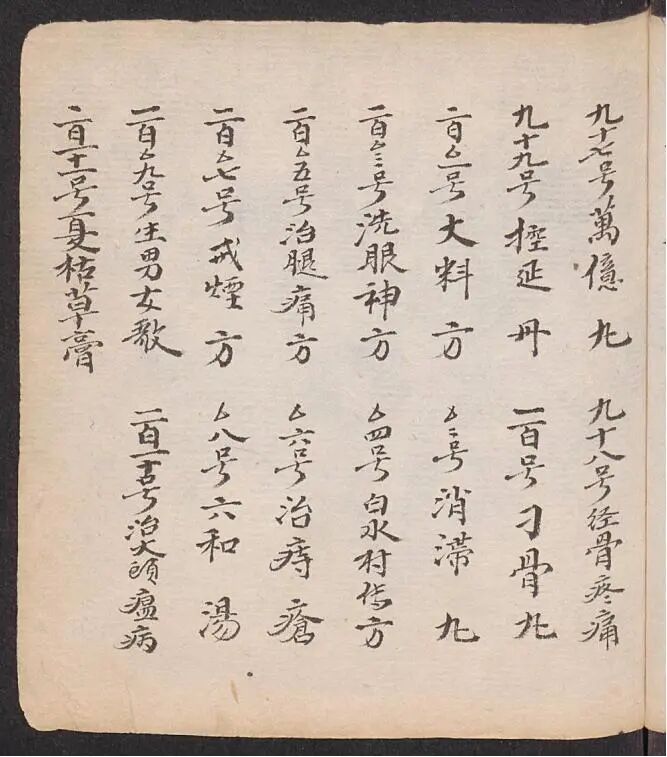 九十七号萬億丸　九十八号经骨疼痛
九十九号控延丹　一百号刁骨丸
一百〇一号大料方　〇二号消滞丸
一百〇三号洗眼神方　〇四号白水村传方
一百〇五号治腿痛方　〇六号治痔瘡
一百〇七号戒煙方　〇八号六和湯
一百〇九号生男女散　一百一十号治大頭瘟病
一百十一号夏枯草膏